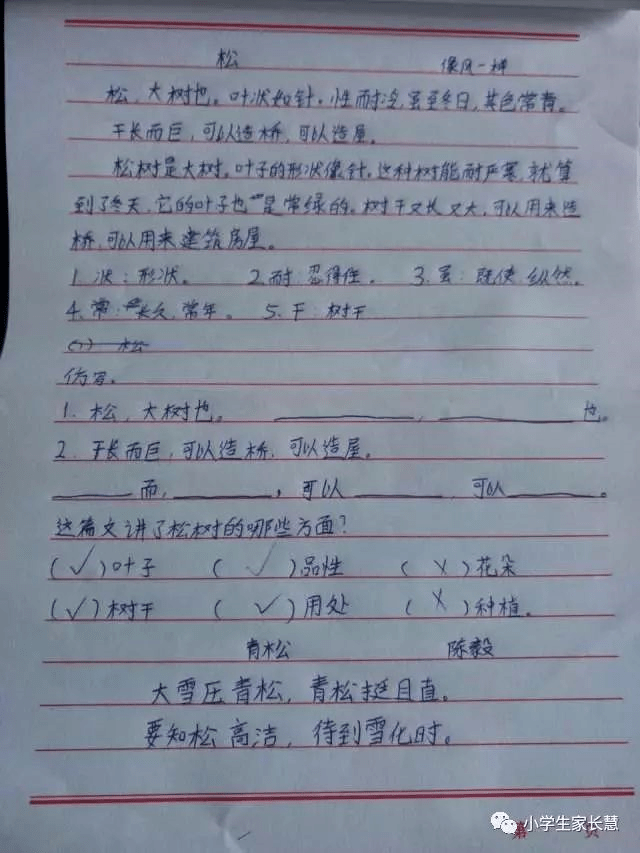 松 像风一样
松，大树也。叶状如针。性耐冷，虽至冬日，其色常青。
干长而巨，可以造桥，可以造屋。
松树是大树。叶子的形状像针。这种树能耐严寒，就算
到了冬天，它的叶子也是常绿的。树干又长又大，可以用来造
桥，可以用来建筑房屋。
1. 状：形状。 2. 耐：忍得住。 3. 虽：既使，纵然。
4. 常：长久，常年。 5. 干：树干
(1) 松
仿写。
1. 松，大树也。 ，也。
2. 干长而巨，可以造桥，可以造屋。
而，，可以，可以。
这篇文讲了松树的哪些方面？
(✓)叶子 (✓)品性 (×)花朵
(✓)树干 (✓)用处 (×)种植。
青松 陈毅
大雪压青松，青松挺且直。
要知松高洁，待到雪化时。
第 页
小学生家长慧